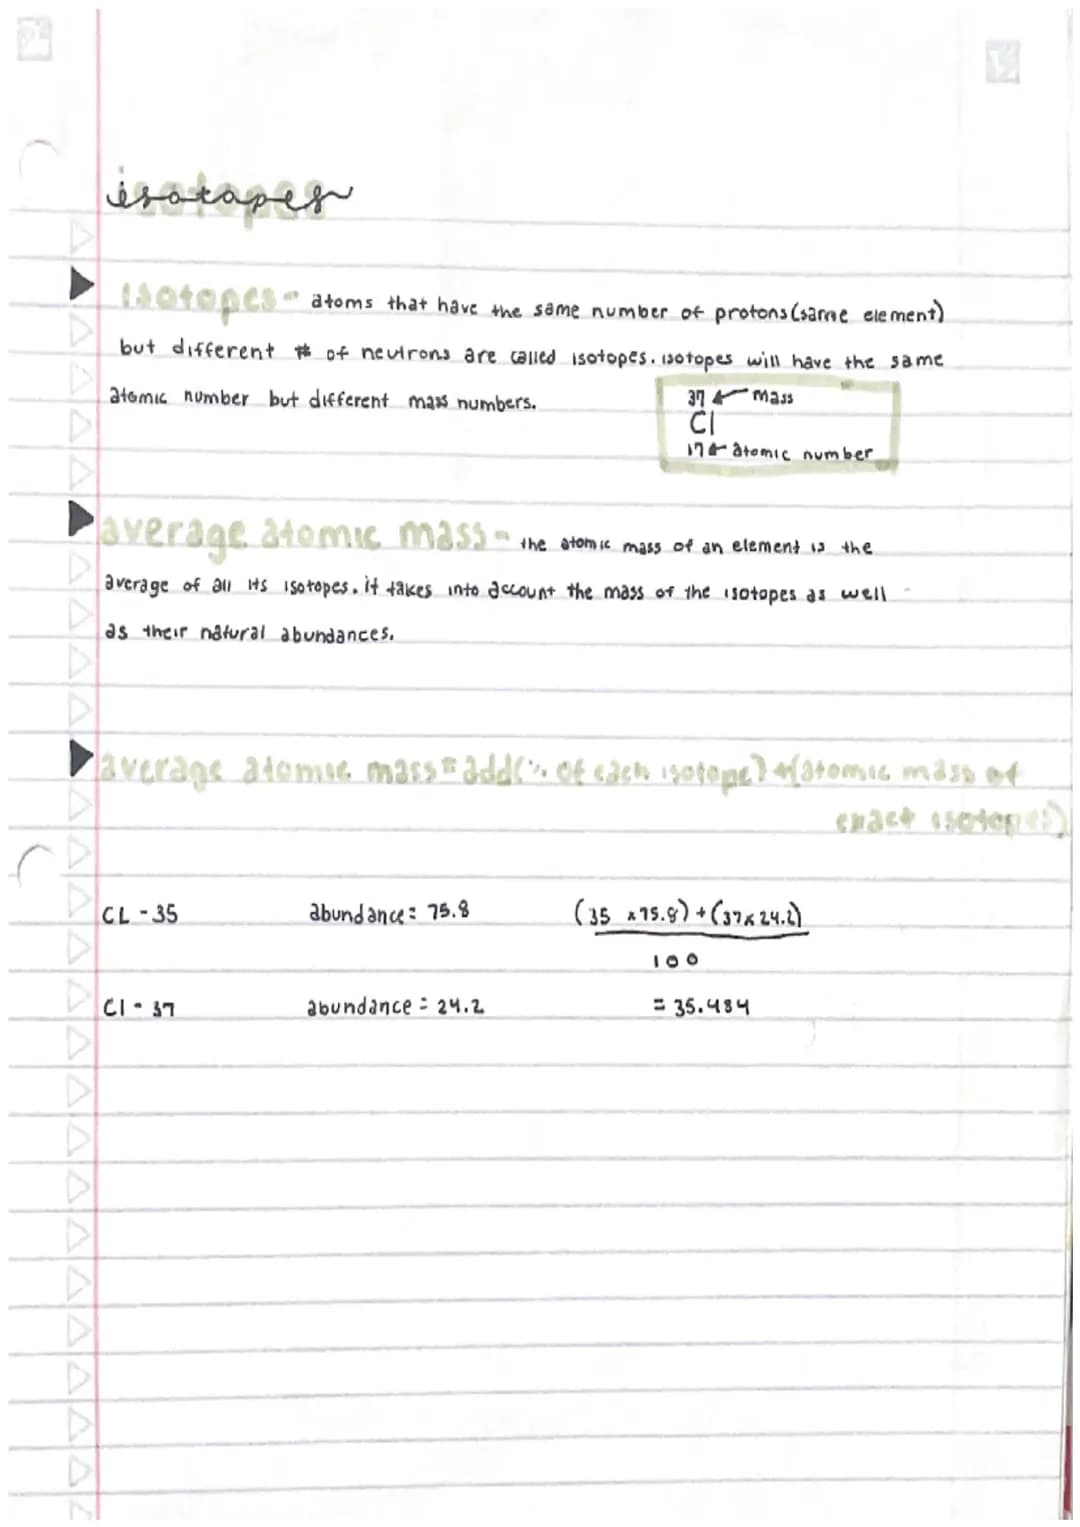 isotopes
isotopes - atoms that have the same number of protons (same element)
but different # of neutrons are called isotopes. isotopes will have the same
atomic number but different mass numbers.
37 ← mass
Cl
17 ← atomic number
average atomic mass - the atomic mass of an element is the
average of all its isotopes. it takes into account the mass of the isotopes as well
as their natural abundances.
average atomic mass = add (% of each isotope) + (atomic mass of
exact isotopes)
CL - 35 abundance: 75.8 (35 x 75.8) + (37 x 24.2)
100
Cl - 37 abundance: 24.2 = 35.484